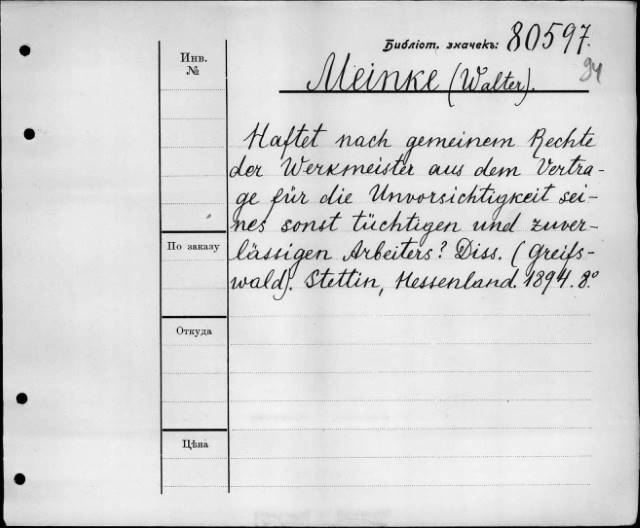 Библіот. значекъ: 80597.
94
Инв.
№
Meinke (Walter).
Haftet nach gemeinem Rechte
der Werkmeister aus dem Vertra-
ge für die Unvorsichtigkeit sei-
nes sonst tüchtigen und zuver-
lässigen Arbeiters? Diss. (Greifs-
wald). Stettin, Hessenland. 1894. 8°
По заказу
Откуда
Цѣна